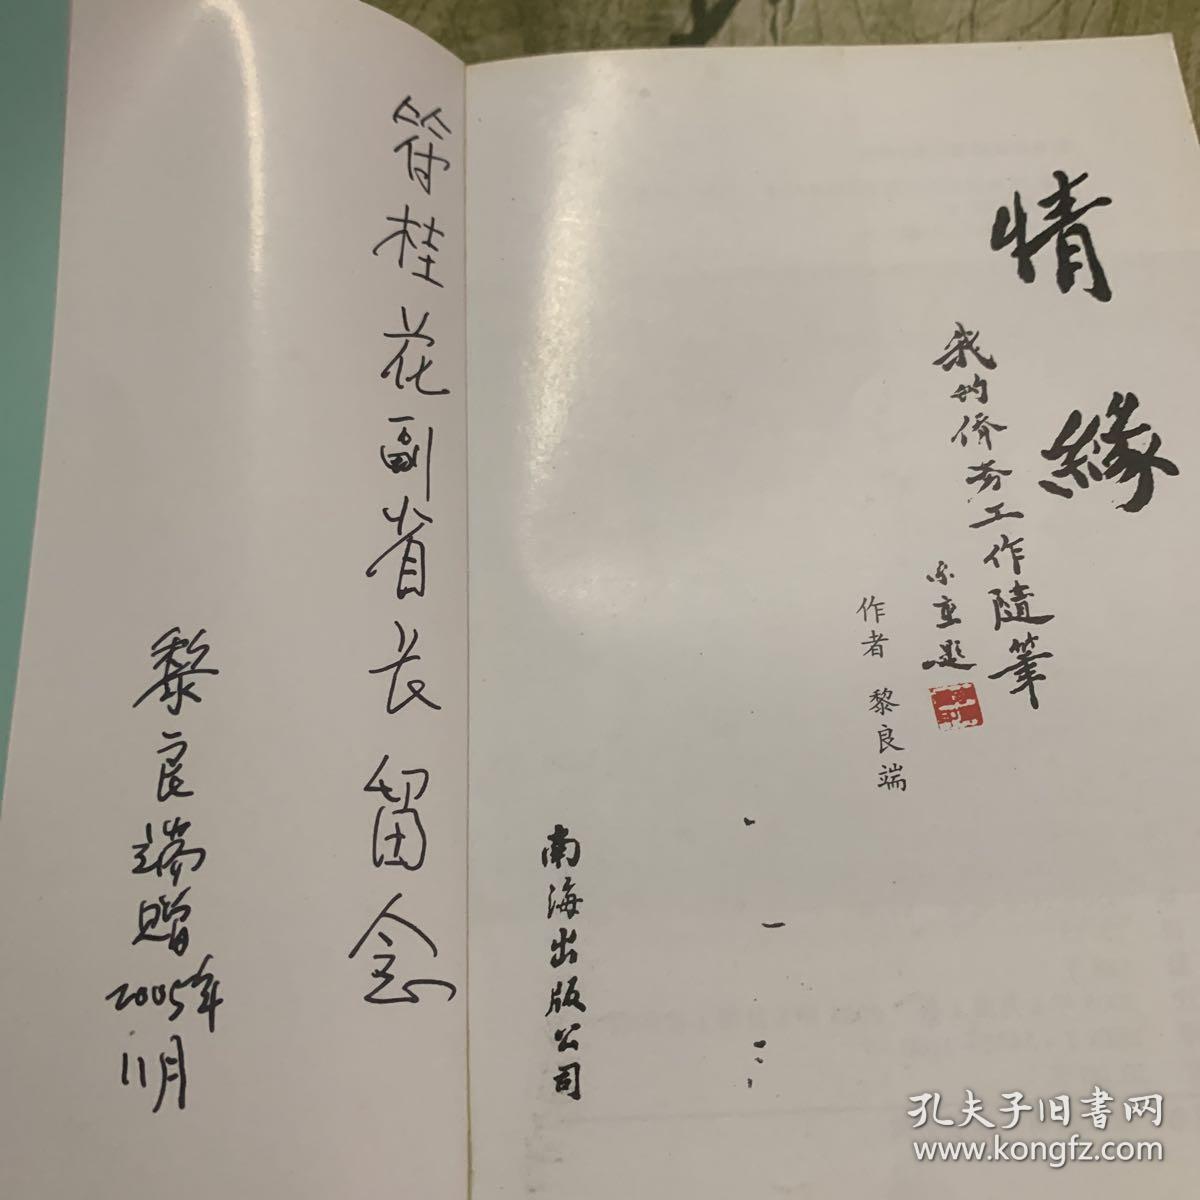 情緣
我的侨务工作隨筆
题
作者 黎良端
南海出版公司
符桂花副省长留念
黎良端赠
2005年
11月
孔夫子旧书网
www.kongfz.com